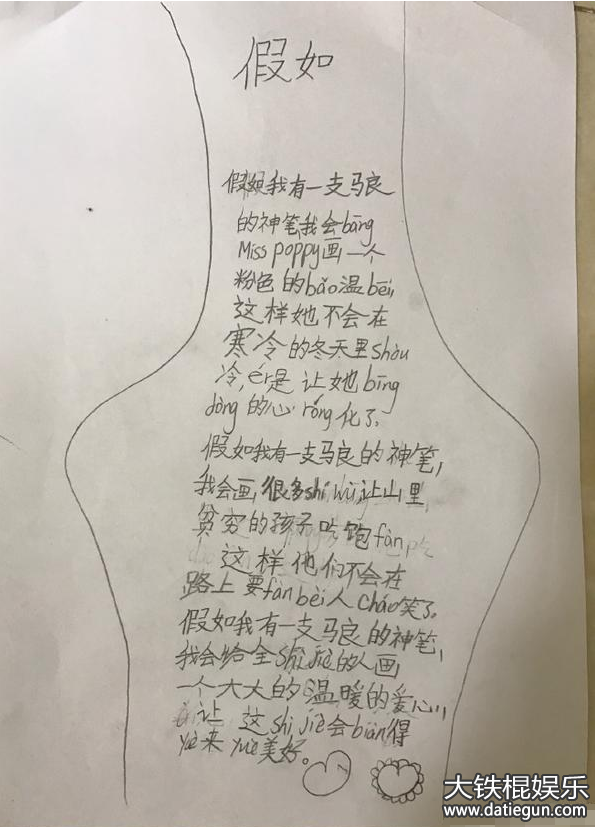 假如
假如我有一支马良
的神笔,我会bāng
Miss poppy画一个
粉色的bǎo温bēi,
这样她不会在
寒冷的冬天里shòu
冷,ér是让她bīng
dòng的心róng化了。
假如我有一支马良的神笔,
我会画,很多shí wù让山里,
贫穷的孩子吃饱fàn
这样他们不会在
路上要fàn bèi人cháo笑了。
假如我有一支马良的神笔,
我会给全shì jiè的人画
一个大大的温暖的爱心,
让这shì jiè会biàn得
yuè来yuè美好。
大铁棍娱乐
www.datiegun.com